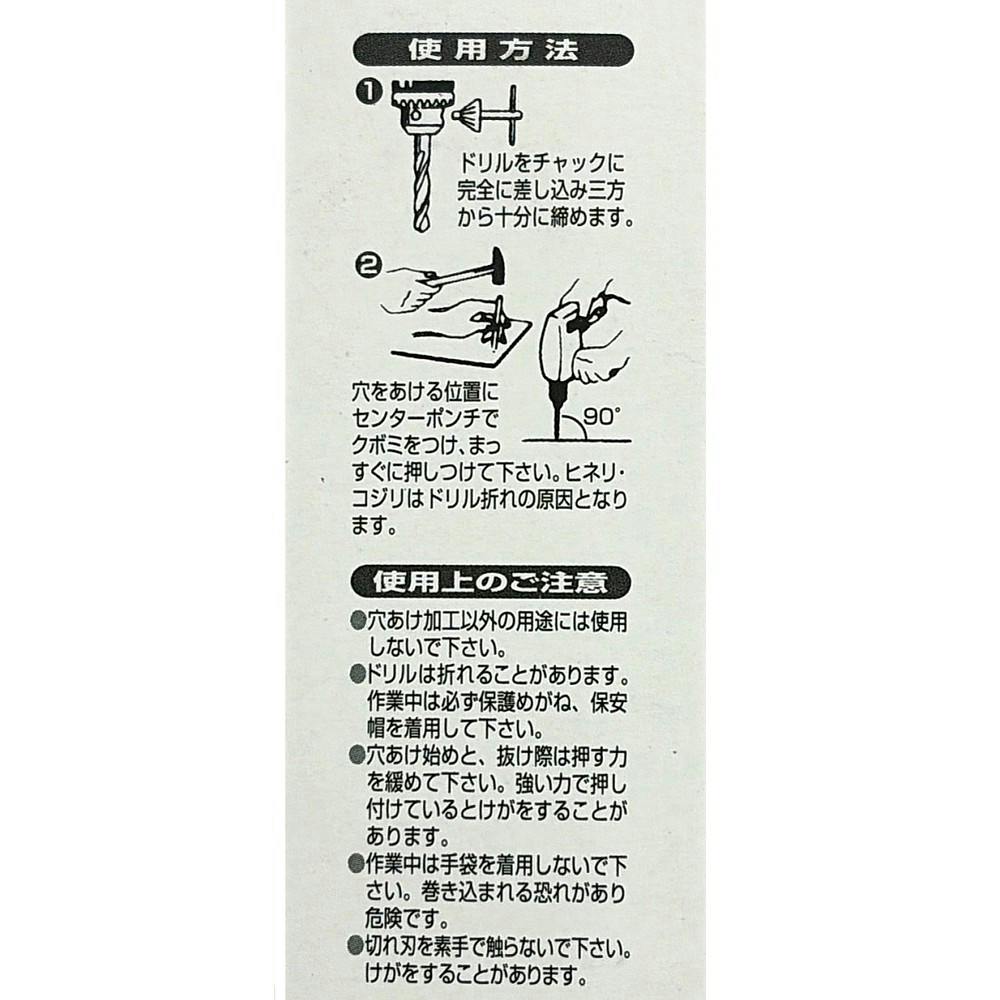 使用方法
①
ドリルをチャックに
完全に差し込み三方
から十分に締めます。
②
90°
穴をあける位置に
センターポンチで
クボミをつけ、まっ
すぐに押しつけて下さい。ヒネリ・
コジリはドリル折れの原因となり
ます。
使用上のご注意
●穴あけ加工以外の用途には使用
しないで下さい。
●ドリルは折れることがあります。
作業中は必ず保護めがね、保安
帽を着用して下さい。
●穴あけ始めと、抜け際は押す力
を緩めて下さい。強い力で押し
付けているとけがをすることが
あります。
●作業中は手袋を着用しないで下
さい。巻き込まれる恐れがあり
危険です。
●切れ刃を素手で触らないで下さい。
けがをすることがあります。